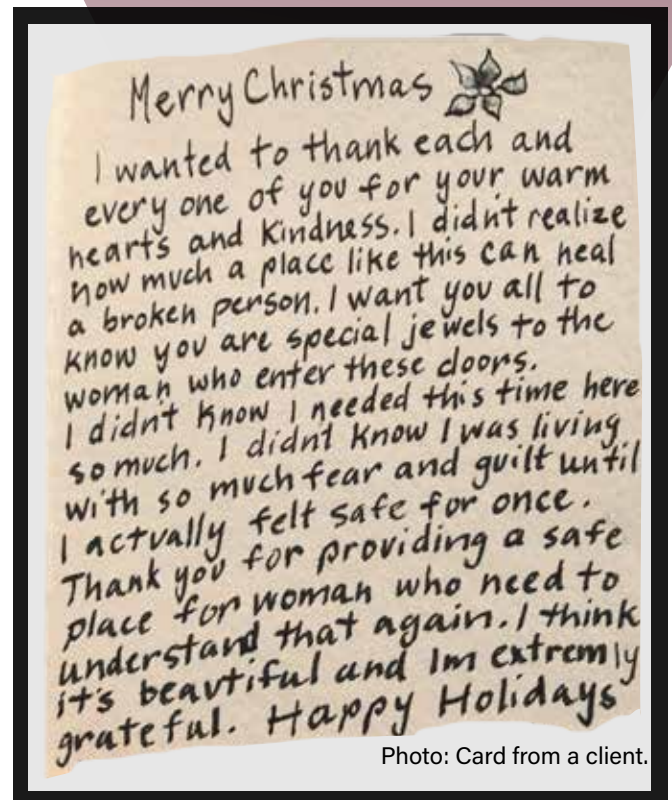 Merry Christmas
I wanted to thank each and
every one of you for your warm
hearts and kindness. I didn't realize
how much a place like this can heal
a broken person. I want you all to
know you are special jewels to the
woman who enter these doors.
I didn't know I needed this time here
so much. I didn't know I was living
with so much fear and guilt until
I actually felt safe for once.
Thank you for providing a safe
place for woman who need to
understand that again. I think
it's beautiful and Im extremly
grateful. Happy Holidays
Photo: Card from a client.